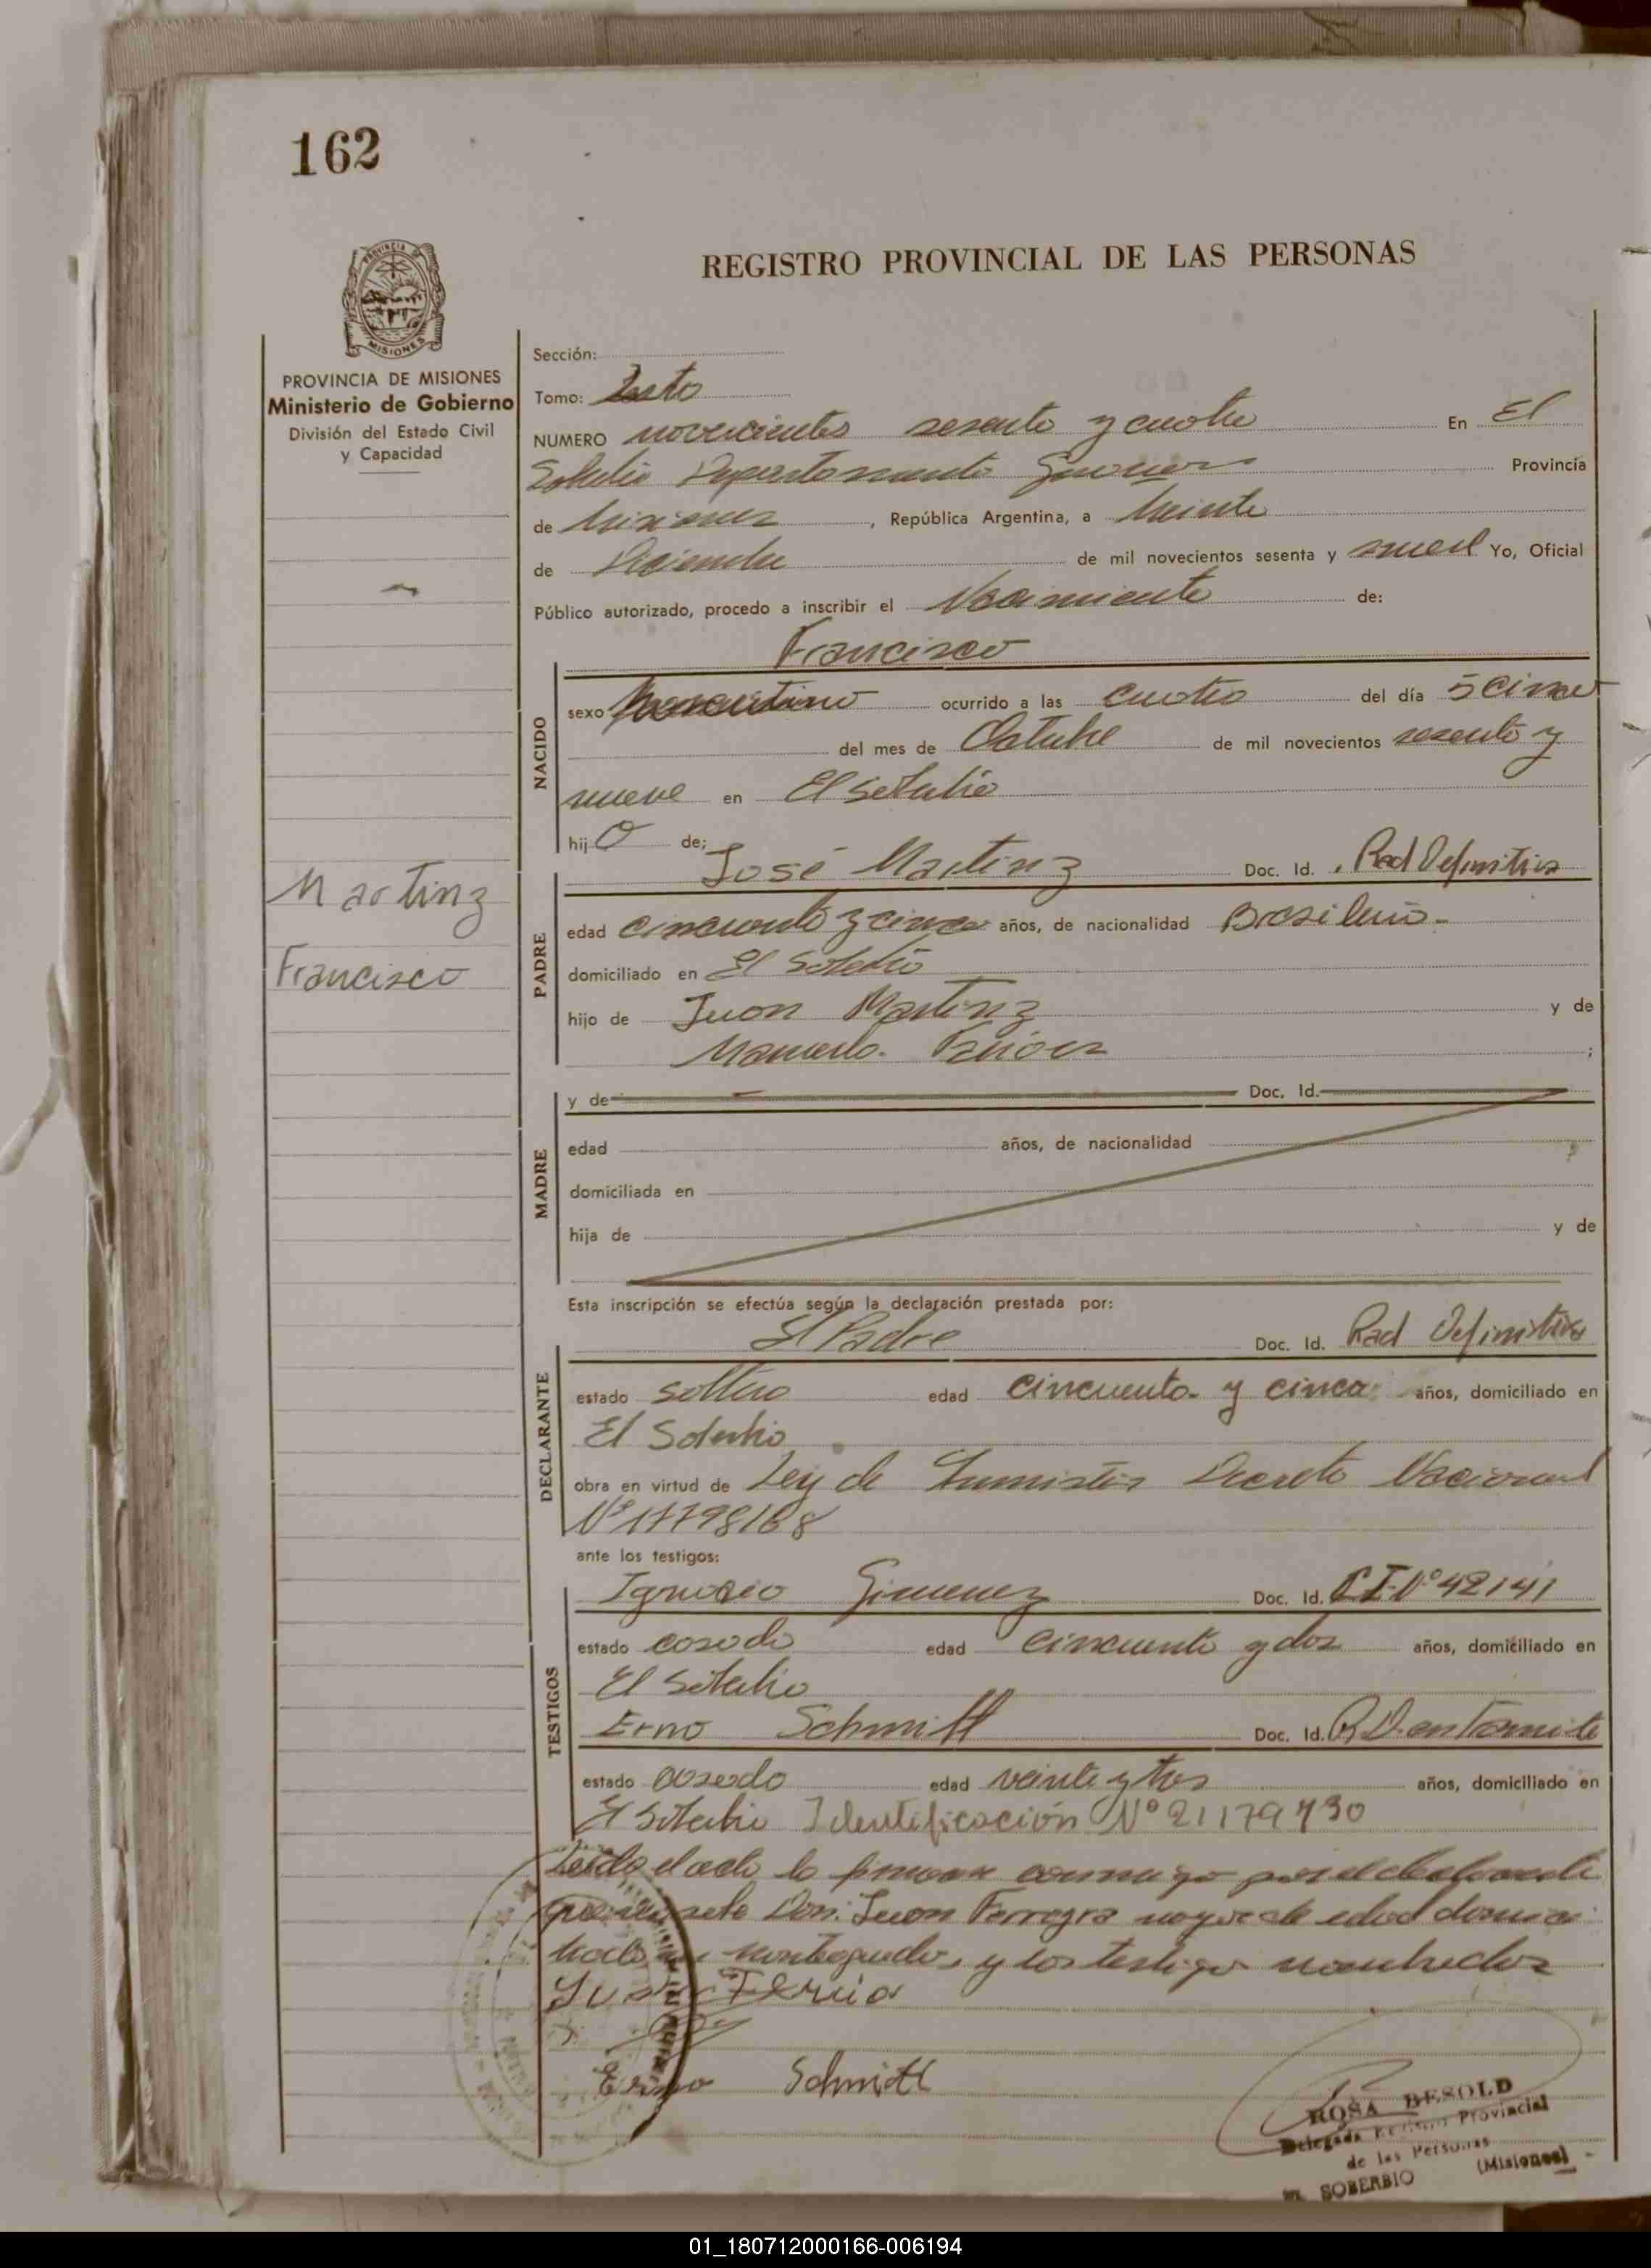 162
REGISTRO PROVINCIAL DE LAS PERSONAS
PROVINCIA DE
MISIONES
PROVINCIA DE MISIONES
Ministerio de Gobierno
División del Estado Civil
y Capacidad
Sección:
Tomo:
NUMERO novecientos sesenta y cuatro En El
Soberbio Departamento Guarani Provincia
de Misiones, República Argentina, a Veinte
de Diciembre de mil novecientos sesenta y nueve Yo, Oficial
Público autorizado, procedo a inscribir el Nacimiento de:
Francisco
NACIDO
sexo Masculino ocurrido a las cuatro del día 5 cinco
del mes de Octubre de mil novecientos sesenta y
nueve en El Soberbio
hijo de;
José Martinz Doc. Id. Rad Definitiva
Martinz
Francisco
PADRE
edad cincuenta y cinco años, de nacionalidad Brasileño-
domiciliado en El Soberbio
hijo de Juan Martinz y de
Manuela ;
MADRE
y de Doc. Id.
edad años, de nacionalidad
domiciliada en
hija de y de
Esta inscripción se efectúa según la declaración prestada por:
El Padre Doc. Id. Rad Definitiva
DECLARANTE
estado soltero edad cincuenta y cinco años, domiciliado en
El Soberbio
obra en virtud de Ley de Decreto Nacional
Nº 17798/68
ante los testigos:
Ignacio Gimenez Doc. Id. C.I.Nº 42141
TESTIGOS
estado casado edad cincuenta y dos años, domiciliado en
El Soberbio
Erno Schmitt Doc. Id. R.D. en Tramite
estado casado edad veinte y tres años, domiciliado en
El Soberbio Identificación Nº 21179730
Leido el acto lo firman conmigo por el declarante
Don: Juan mayor de edad domici
y los testigos nombrados
Erno Schmitt
ROSA BESOLD
Delegada Registro Provincial
de las Personas
SOBERBIO (Misiones)
01_180712000166-006194